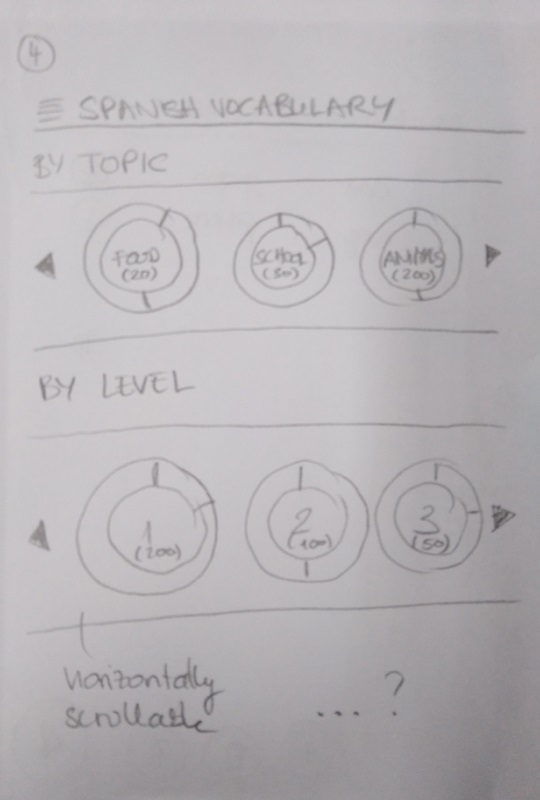 4
SPANISH VOCABULARY
BY TOPIC
FOOD
(20)
SCHOOL
(50)
ANIMALS
(200)
BY LEVEL
1
(200)
2
(100)
3
(50)
horizontally
scrollable
... ?